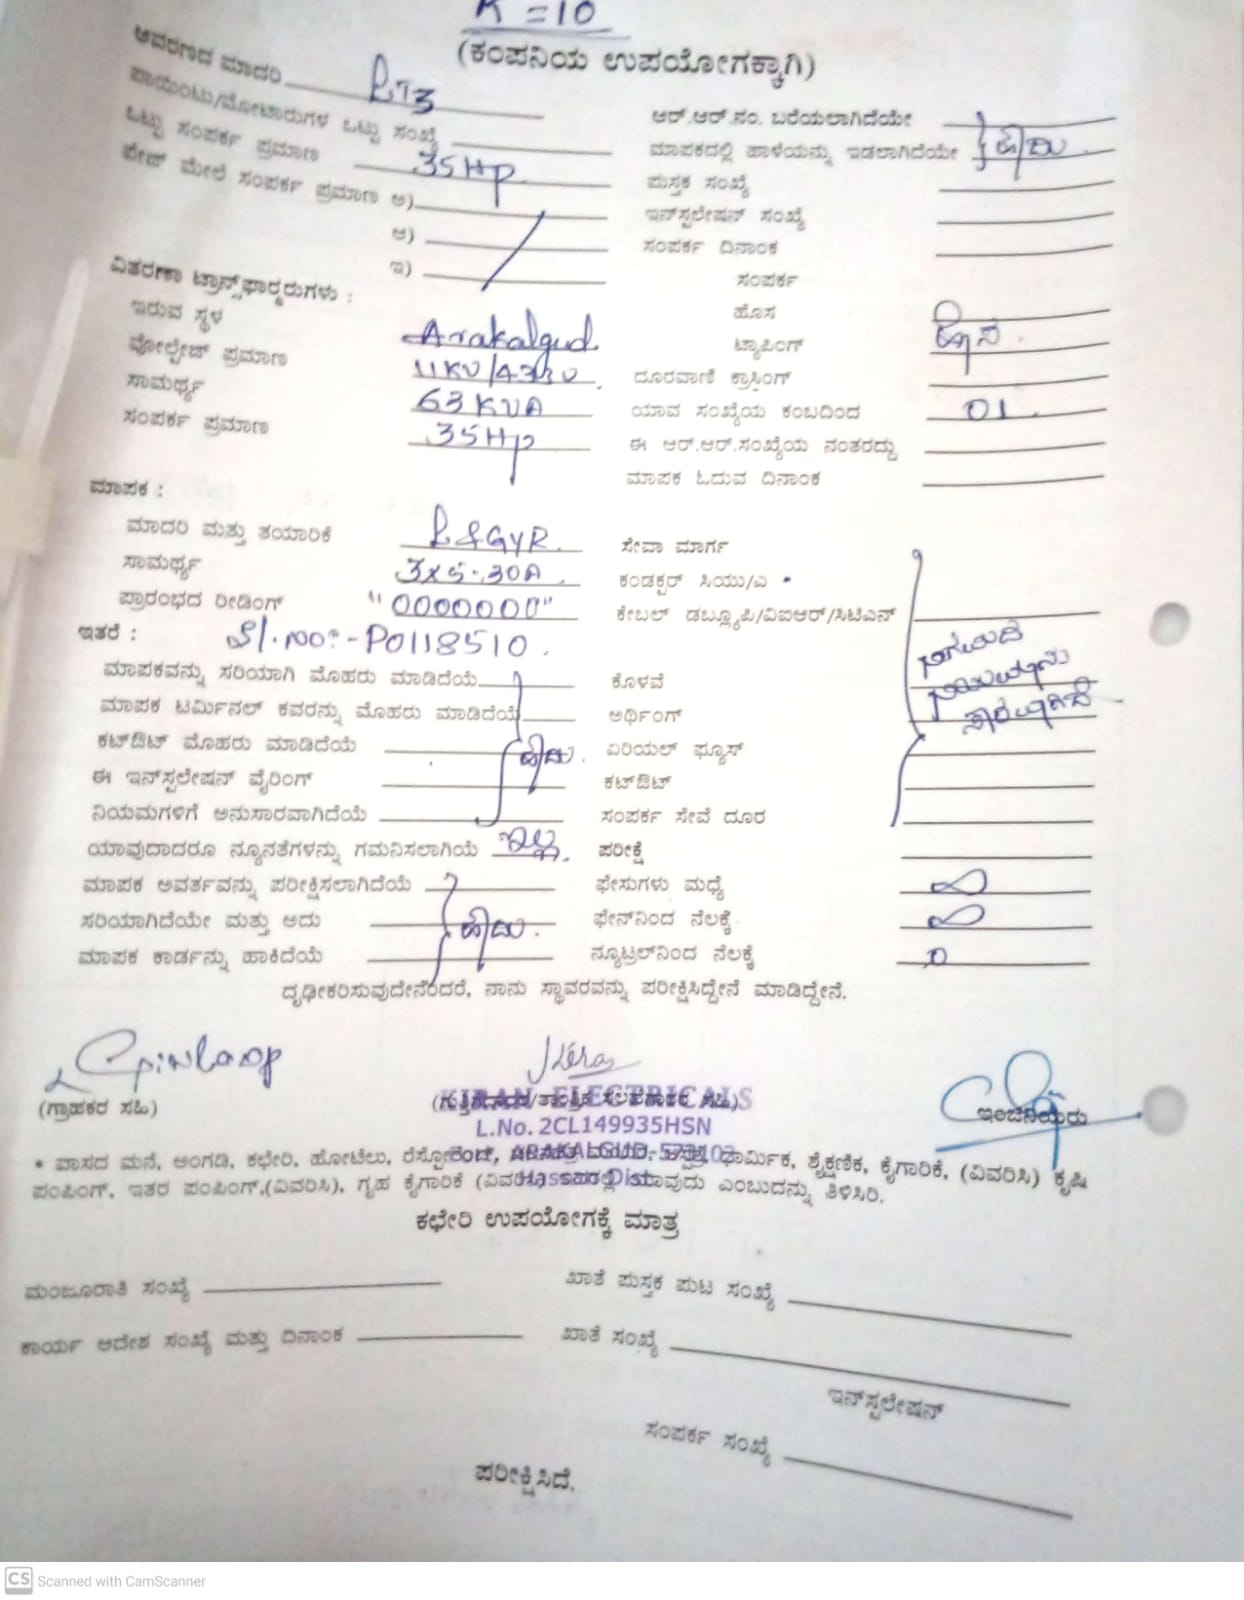 K = 10
(ಕಂಪನಿಯ ಉಪಯೋಗಕ್ಕಾಗಿ)
ಆವರಣದ ಮಾದರಿ LT3
ಪಾಯಿಂಟು/ಮೋಟಾರುಗಳ ಒಟ್ಟು ಸಂಖ್ಯೆ
ಒಟ್ಟು ಸಂಪರ್ಕ ಪ್ರಮಾಣ 35HP
ಪೇಜ್ ಮೇಲೆ ಸಂಪರ್ಕ ಪ್ರಮಾಣ ಅ)
ಆ)
ಇ)
ಆರ್.ಆರ್.ನಂ. ಬರೆಯಲಾಗಿದೆಯೇ
ಮಾಪಕದಲ್ಲಿ ಹಾಳೆಯನ್ನು ಇಡಲಾಗಿದೆಯೇ ಹೌದು
ಪುಸ್ತಕ ಸಂಖ್ಯೆ
ಇನ್‌ಸ್ಟಲೇಷನ್ ಸಂಖ್ಯೆ
ಸಂಪರ್ಕ ದಿನಾಂಕ
ಸಂಪರ್ಕ
ವಿತರಣಾ ಟ್ರಾನ್ಸ್‌ಫಾರ್ಮರುಗಳು :
ಇರುವ ಸ್ಥಳ Arakalgud
ವೋಲ್ಟೇಜ್ ಪ್ರಮಾಣ 11KV/433V
ಸಾಮರ್ಥ್ಯ 63KVA
ಸಂಪರ್ಕ ಪ್ರಮಾಣ 35HP
ಹೊಸ ಹೊಸ.
ಟ್ಯಾಪಿಂಗ್
ದೂರವಾಣಿ ಕ್ರಾಸಿಂಗ್
ಯಾವ ಸಂಖ್ಯೆಯ ಕಂಬದಿಂದ 01.
ಈ ಆರ್.ಆರ್.ಸಂಖ್ಯೆಯ ನಂತರದ್ದು
ಮಾಪಕ ಓದುವ ದಿನಾಂಕ
ಮಾಪಕ :
ಮಾದರಿ ಮತ್ತು ತಯಾರಿಕೆ L&GYR.
ಸಾಮರ್ಥ್ಯ 3x5-30A.
ಪ್ರಾರಂಭದ ರೀಡಿಂಗ್ "0000000"
ಇತರೆ : Sl.no:-P0118510.
ಸೇವಾ ಮಾರ್ಗ
ಕಂಡಕ್ಟರ್ ಸಿಯು/ಎ
ಕೇಬಲ್ ಡಬ್ಲ್ಯೂಪಿ/ವಿಐಆರ್/ಸಿಟಿಎಸ್
ಮಾಪಕವನ್ನು ಸರಿಯಾಗಿ ಮೊಹರು ಮಾಡಿದೆಯೆ
ಮಾಪಕ ಟರ್ಮಿನಲ್ ಕವರನ್ನು ಮೊಹರು ಮಾಡಿದೆಯೆ
ಕಟ್‌ಔಟ್ ಮೊಹರು ಮಾಡಿದೆಯೆ ಹೌದು.
ಈ ಇನ್‌ಸ್ಟಲೇಷನ್ ವೈರಿಂಗ್
ನಿಯಮಗಳಿಗೆ ಅನುಸಾರವಾಗಿದೆಯೆ
ಯಾವುದಾದರೂ ನ್ಯೂನತೆಗಳನ್ನು ಗಮನಿಸಲಾಗಿಯೆ ಇಲ್ಲ.
ಮಾಪಕ ಅವರ್ತವನ್ನು ಪರೀಕ್ಷಿಸಲಾಗಿದೆಯೆ
ಸರಿಯಾಗಿದೆಯೇ ಮತ್ತು ಅದು ಹೌದು.
ಮಾಪಕ ಕಾರ್ಡನ್ನು ಹಾಕಿದೆಯೆ
ಕೊಳವೆ ನಿಗಮದ
ಅರ್ಥಿಂಗ್ ನಿಯಮಾನು
ಸಾರವಾಗಿದೆ
ಏರಿಯಲ್ ಫ್ಯೂಸ್
ಕಟ್‌ಔಟ್
ಸಂಪರ್ಕ ಸೇವೆ ದೂರ
ಪರೀಕ್ಷೆ
ಫೇಸುಗಳು ಮಧ್ಯೆ ∞
ಫೇಸ್‌ನಿಂದ ನೆಲಕ್ಕೆ ∞
ನ್ಯೂಟ್ರಲ್‌ನಿಂದ ನೆಲಕ್ಕೆ 0
ದೃಢೀಕರಿಸುವುದೇನೆಂದರೆ, ನಾನು ಸ್ಥಾವರವನ್ನು ಪರೀಕ್ಷಿಸಿದ್ದೇನೆ ಮಾಡಿದ್ದೇನೆ.
(ಗ್ರಾಹಕರ ಸಹಿ)
Kiran
KIRAN ELECTRICALS
L.No. 2CL149935HSN
ARAKALGUD-573102
Hassan Dist.
ಇಂಜಿನಿಯರು
• ವಾಸದ ಮನೆ, ಅಂಗಡಿ, ಕಛೇರಿ, ಹೋಟೆಲು, ಧಾರ್ಮಿಕ, ಶೈಕ್ಷಣಿಕ, ಕೈಗಾರಿಕೆ, (ವಿವರಿಸಿ) ಕೃಷಿ
ಪಂಪಿಂಗ್, ಇತರ ಪಂಪಿಂಗ್,(ವಿವರಿಸಿ), ಗೃಹ ಕೈಗಾರಿಕೆ (ವಿವರಿಸಿ) ಯಾವುದು ಎಂಬುದನ್ನು ತಿಳಿಸಿರಿ.
ಕಛೇರಿ ಉಪಯೋಗಕ್ಕೆ ಮಾತ್ರ
ಮಂಜೂರಾತಿ ಸಂಖ್ಯೆ
ಕಾರ್ಯ ಆದೇಶ ಸಂಖ್ಯೆ ಮತ್ತು ದಿನಾಂಕ
ಖಾತೆ ಪುಸ್ತಕ ಪುಟ ಸಂಖ್ಯೆ
ಖಾತೆ ಸಂಖ್ಯೆ
ಇನ್‌ಸ್ಟಲೇಷನ್
ಸಂಪರ್ಕ ಸಂಖ್ಯೆ
ಪರೀಕ್ಷಿಸಿದೆ.
CS Scanned with CamScanner